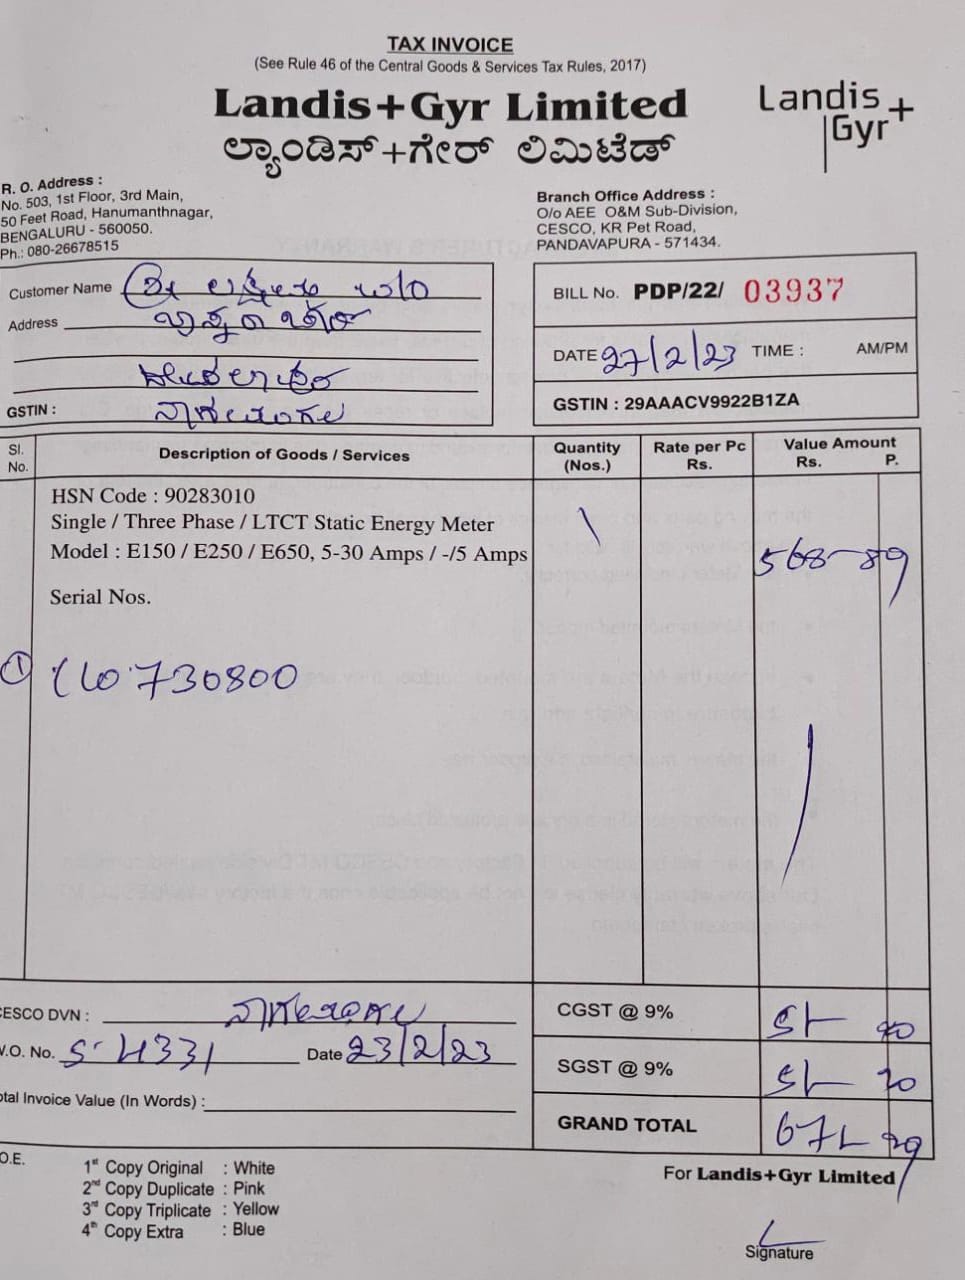 TAX INVOICE
(See Rule 46 of the Central Goods & Services Tax Rules, 2017)
Landis+Gyr Limited
ಲ್ಯಾಂಡಿಸ್+ಗೇರ್ ಲಿಮಿಟೆಡ್
Landis
Gyr+
R. O. Address :
No. 503, 1st Floor, 3rd Main,
50 Feet Road, Hanumanthnagar,
BENGALURU - 560050.
Ph.: 080-26678515
Branch Office Address :
O/o AEE O&M Sub-Division,
CESCO, KR Pet Road,
PANDAVAPURA - 571434.
Customer Name
Address
GSTIN : ನಾಗಮಂಗಲ
BILL No. PDP/22/ 03937
DATE 27/2/23 TIME : AM/PM
GSTIN : 29AAACV9922B1ZA
Sl. No. Description of Goods / Services Quantity (Nos.) Rate per Pc Rs. Value Amount Rs. P.
HSN Code : 90283010
Single / Three Phase / LTCT Static Energy Meter 1
Model : E150 / E250 / E650, 5-30 Amps / -/5 Amps 568-89
Serial Nos.
① 730800
CESCO DVN : ನಾಗಮಂಗಲ
W.O. No. S-4331 Date 23/2/23
Total Invoice Value (In Words) :
CGST @ 9% 51
SGST @ 9% 51 20
GRAND TOTAL 671 29
O.E.
1st Copy Original : White
2nd Copy Duplicate : Pink
3rd Copy Triplicate : Yellow
4th Copy Extra : Blue
For Landis+Gyr Limited
Signature